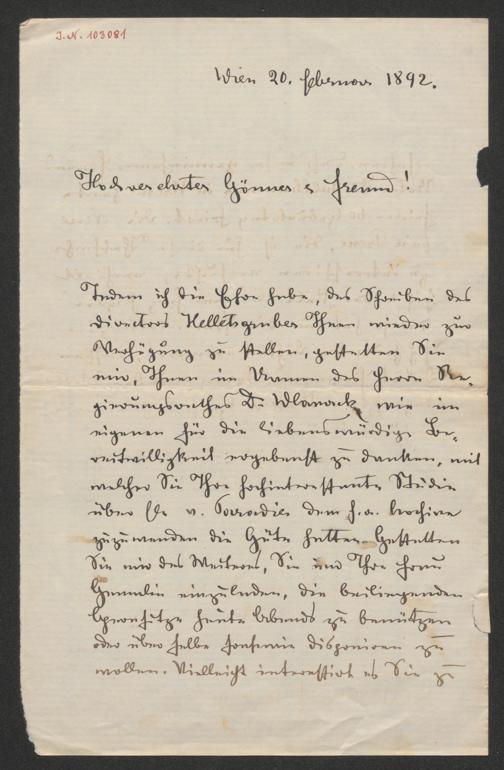 J.N. 103081
Wien 20. Februar 1892.
Hochverehrter Gönner u Freund!
Indem ich die Ehre habe, das Schreiben des
Directors Helletsgruber Ihnen wieder zur
Verfügung zu stellen, gestatten Sie
mir, Ihnen im Namen des Herrn Re-
gierungsrathes Dr. Wlassack, wie im
eigenen für die liebenswürdige Be-
reitwilligkeit ergebenst zu danken, mit
welcher Sie Ihre hochinteressante Studie
über v. dem h.o. Archive
zuzuwenden die Güte hatten. Gestatten
Sie mir des Weiteren, Sie und Ihre Frau
Gemalin einzuladen, die beiliegenden
Opernsitze heute Abends zu benützen
oder über selbe sonstwie disponiren zu
wollen. Vielleicht interessirt es Sie zu